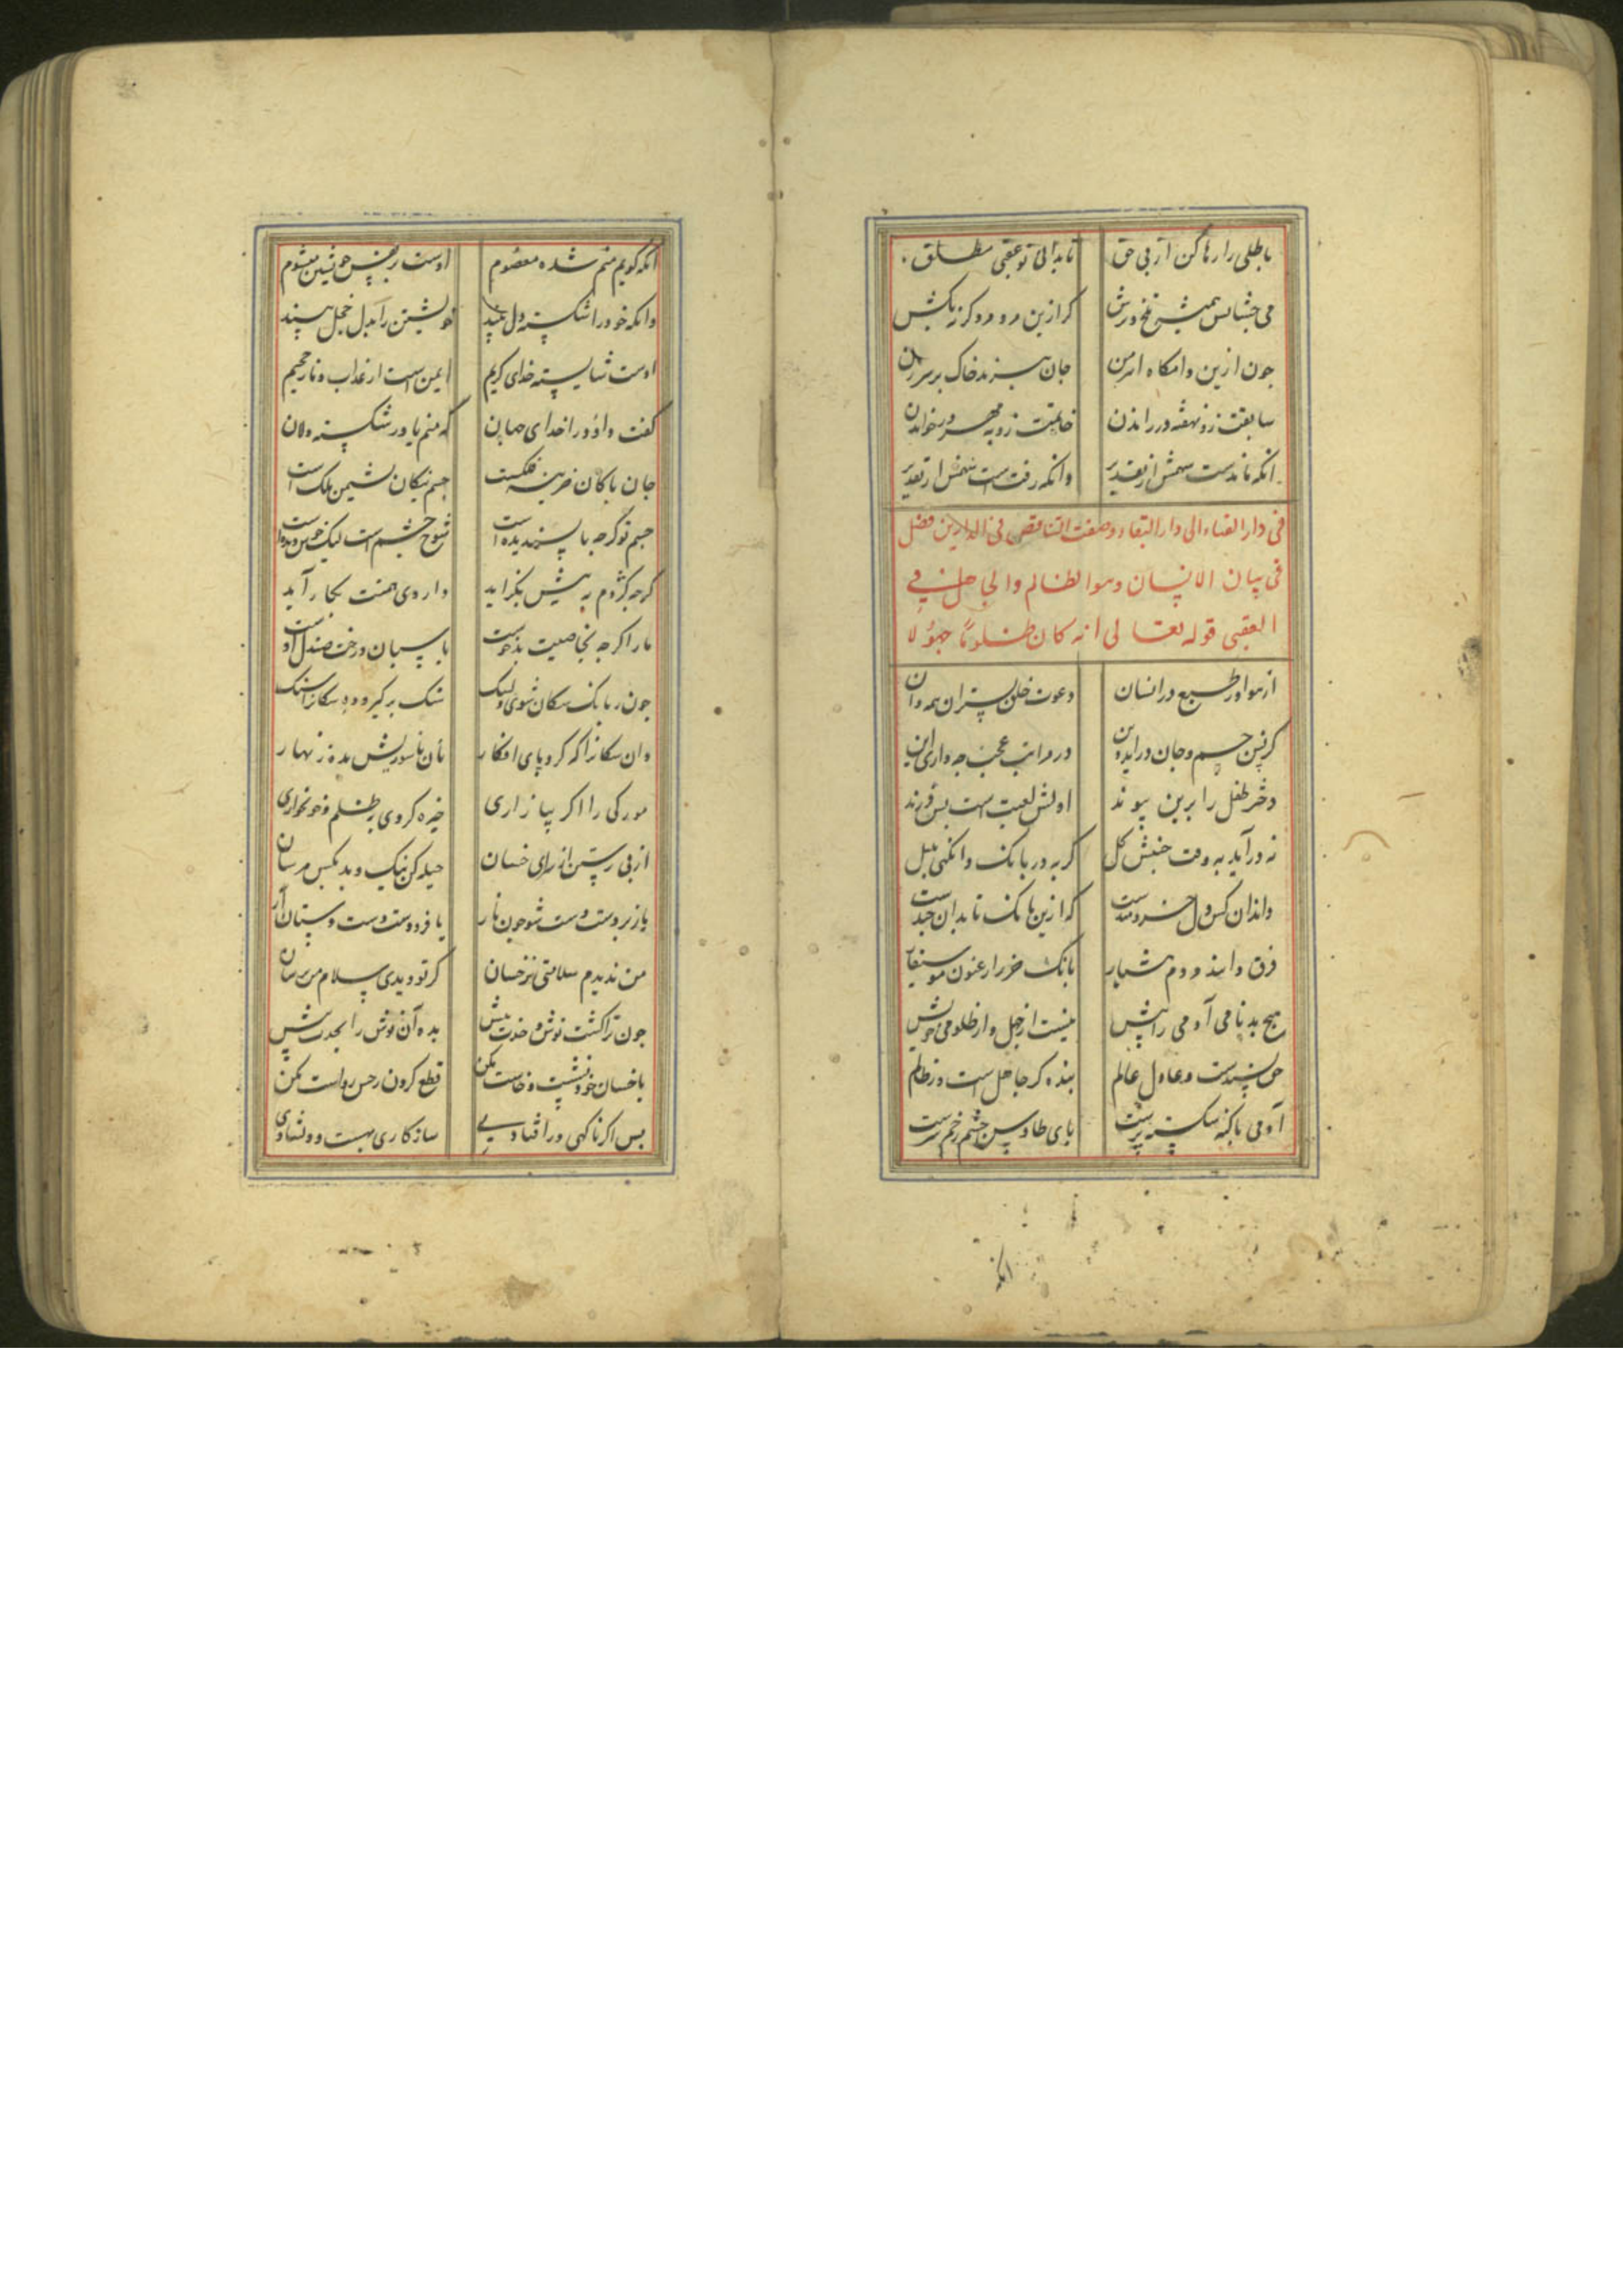 باطلی را رها کن از پی حق تا بدانی تو عقبی مطلق
می چشانش همیشه تلخ و ترش کر ازین مرد مرد کر نه بکش
چون ازین دامکاه اهرمن جان بپرند خاک بر سر تن
سابقت زو نهفته در راندن خاتمت زو به مهر در خواندن
آنکه ماندست سهمش از تقدیر وانکه رفتست سهمش از تقدیر
فی دار الفناء الی دار البقاء وصفت التناقص فی الدارین فصل
فی بیان الانسان وهو الظالم والجاهل فی
العقبی قوله تعالی انه کان ظلوما جهولا
از هوا و ز طبع در انسان دعوت خلق بستران همه دان
دختر طفل را برین پیوند اولش لعبت است پس فرزند
نه در آید به وقت جنبش کل کربه در بانک وانکهی بلبل
داند آن کس کش خردمندست که ازین بانک تا بدان چندست
فرق داند مردم هشیار بانک خر از ارغنون موسیقار
هیچ بد نامی آدمی را پیش نیست از جهل و از ظلومی خویش
حق پسندست و عادل عالم بنده کر جاهل است وز ظالم
آدمی با کنه شکسته ترست پای طاوس چشم زخم پرست
آنکه
آنکه کویم منم شده معصوم اوست بر نفس خویشتن میشوم
وانکه خود را شکسته دل بیند خویشتن را بدل خجل بیند
اوست شایسته خدای کریم ایمن است از عذاب و نار جحیم
کفت داود را خدای جهان که منم یاور شکسته دلان
جان پاکان خزینه فلکست جسم نیکان نشیمن ملک است
جسم تو کرچه ناپسندیده است شوخ چشم است لیک خوش دیده است
کرچه کژدم به نیش بکزاید داروی همت بکار آید
مار اکرچه بخاصیت بدخوست پاسبان درخت صندل اوست
چون ز بانک سکان شوی دلتنک سنک برکیر و ده سکانرا سنک
وان سکانرا که کرد پای افکار نان با سوزنش مده زنهار
مورکی را اکر بیازاری خیره کردی بظلم و خونخواری
از پی رستن از سرای خسان حیله کن نیک و بد بکس مرسان
باز بر دست و دست شو چون نار با فرودست دست و دستان آر
من ندیدم سلامتی ز خسان کر تو دیدی سلام من برسان
چون ترا کشت نوش و خدمت نیش بده آن نوش را بخدمت پیش
با خسان خود نشست و خاست مکن قطع کردن ز حس راست مکن
پس اکر ناکهی در افتادی سازکاری بهست و دلشادی